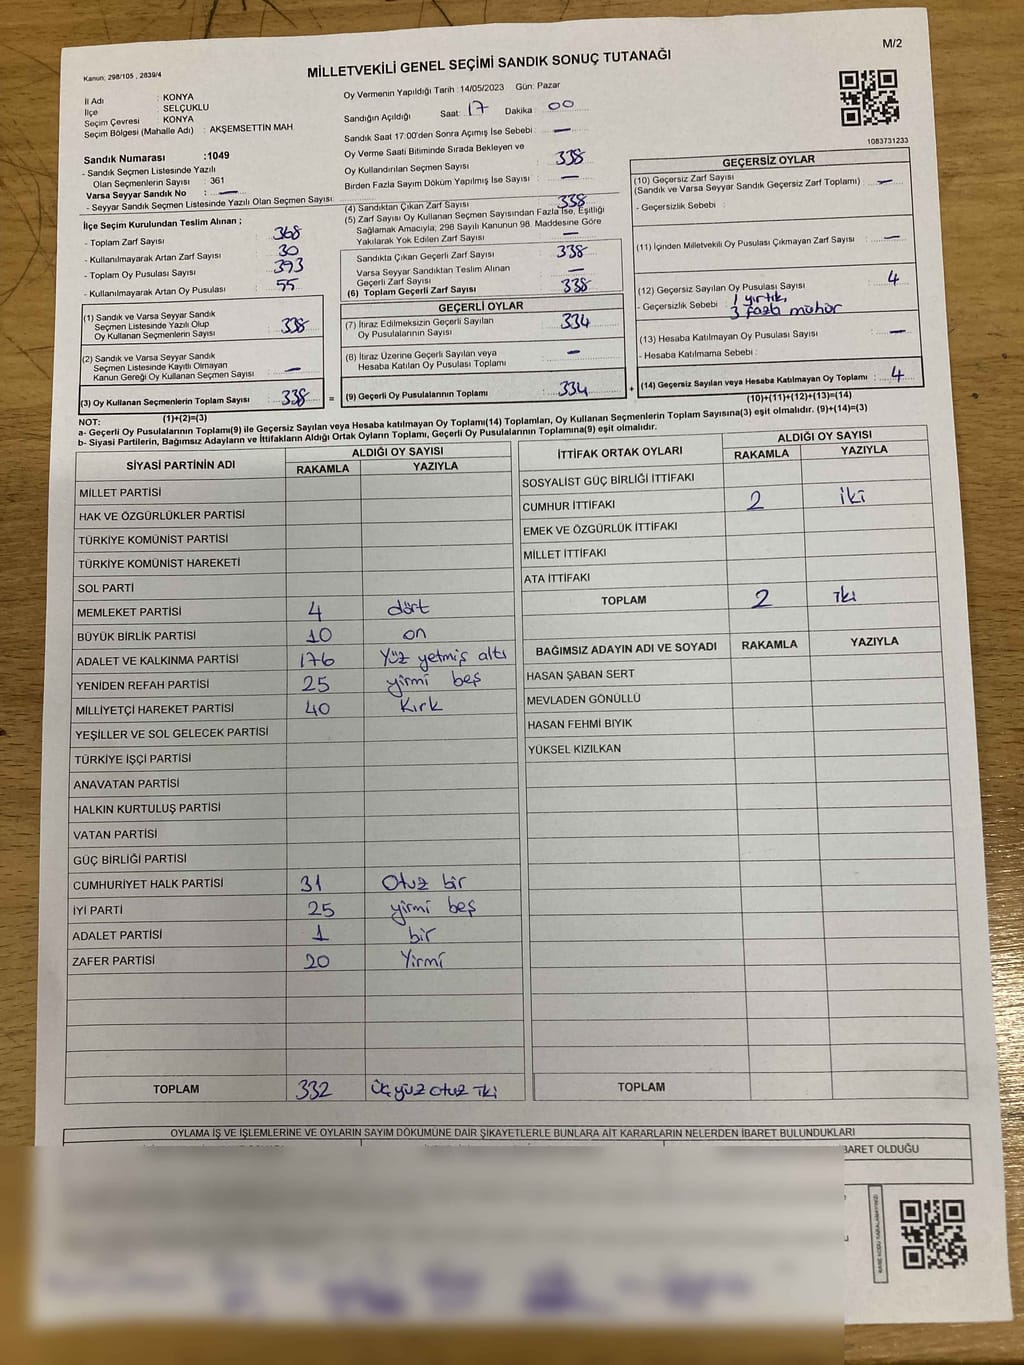 M/2
Kanun; 298/105 , 2839/4
MİLLETVEKİLİ GENEL SEÇİMİ SANDIK SONUÇ TUTANAĞI
İl Adı : KONYA
İlçe : SELÇUKLU
Seçim Çevresi : KONYA
Seçim Bölgesi (Mahalle Adı) : AKŞEMSETTİN MAH
Sandık Numarası :1049
- Sandık Seçmen Listesinde Yazılı
Olan Seçmenlerin Sayısı : 361
Varsa Seyyar Sandık No : —
- Seyyar Sandık Seçmen Listesinde Yazılı Olan Seçmen Sayısı:
İlçe Seçim Kurulundan Teslim Alınan ;
- Toplam Zarf Sayısı : 368
- Kullanılmayarak Artan Zarf Sayısı : 30
- Toplam Oy Pusulası Sayısı : 393
- Kullanılmayarak Artan Oy Pusulası : 55
(1) Sandık ve Varsa Seyyar Sandık
Seçmen Listesinde Yazılı Olup
Oy Kullanan Seçmenlerin Sayısı : 338
(2) Sandık ve Varsa Seyyar Sandık
Seçmen Listesinde Kayıtlı Olmayan
Kanun Gereği Oy Kullanan Seçmen Sayısı : —
(3) Oy Kullanan Seçmenlerin Toplam Sayısı : 338 =
(1)+(2)=(3)
Oy Vermenin Yapıldığı Tarih :14/05/2023 Gün: Pazar
Sandığın Açıldığı Saat: 17 Dakika : 00
Sandık Saat 17:00'den Sonra Açımış İse Sebebi : —
Oy Verme Saati Bitiminde Sırada Bekleyen ve
Oy Kullandırılan Seçmen Sayısı : 338
Birden Fazla Sayım Döküm Yapılmış İse Sayısı : —
(4) Sandıktan Çıkan Zarf Sayısı : 338
(5) Zarf Sayısı Oy Kullanan Seçmen Sayısından Fazla İse, Eşitliği
Sağlamak Amacıyla, 298 Sayılı Kanunun 98. Maddesine Göre
Yakılarak Yok Edilen Zarf Sayısı : —
Sandıkta Çıkan Geçerli Zarf Sayısı : 338
Varsa Seyyar Sandıktan Teslim Alınan
Geçerli Zarf Sayısı : —
(6) Toplam Geçerli Zarf Sayısı : 338
GEÇERLİ OYLAR
(7) İtiraz Edilmeksizin Geçerli Sayılan
Oy Pusulalarının Sayısı : 334
(8) İtiraz Üzerine Geçerli Sayılan veya
Hesaba Katılan Oy Pusulası Toplamı : —
(9) Geçerli Oy Pusulalarının Toplamı : 334 +
1083731233
GEÇERSİZ OYLAR
(10) Geçersiz Zarf Sayısı
(Sandık ve Varsa Seyyar Sandık Geçersiz Zarf Toplamı) : —
- Geçersizlik Sebebi :
(11) İçinden Milletvekili Oy Pusulası Çıkmayan Zarf Sayısı : —
(12) Geçersiz Sayılan Oy Pusulası Sayısı : 4
- Geçersizlik Sebebi : 1 yırtık,
3 fazla mühür
(13) Hesaba Katılmayan Oy Pusulası Sayısı : —
- Hesaba Katılmama Sebebi :
(14) Geçersiz Sayılan veya Hesaba Katılmayan Oy Toplamı : 4
(10)+(11)+(12)+(13)=(14)
NOT:
a- Geçerli Oy Pusulalarının Toplamı(9) ile Geçersiz Sayılan veya Hesaba katılmayan Oy Toplamı(14) Toplamları, Oy Kullanan Seçmenlerin Toplam Sayısına(3) eşit olmalıdır. (9)+(14)=(3)
b- Siyasi Partilerin, Bağımsız Adayların ve İttifakların Aldığı Ortak Oyların Toplamı, Geçerli Oy Pusulalarının Toplamına(9) eşit olmalıdır.
SİYASİ PARTİNİN ADI ALDIĞI OY SAYISI
RAKAMLA YAZIYLA
MİLLET PARTİSİ
HAK VE ÖZGÜRLÜKLER PARTİSİ
TÜRKİYE KOMÜNİST PARTİSİ
TÜRKİYE KOMÜNİST HAREKETİ
SOL PARTİ
MEMLEKET PARTİSİ 4 dört
BÜYÜK BİRLİK PARTİSİ 10 on
ADALET VE KALKINMA PARTİSİ 176 Yüz yetmiş altı
YENİDEN REFAH PARTİSİ 25 yirmi beş
MİLLİYETÇİ HAREKET PARTİSİ 40 Kırk
YEŞİLLER VE SOL GELECEK PARTİSİ
TÜRKİYE İŞÇİ PARTİSİ
ANAVATAN PARTİSİ
HALKIN KURTULUŞ PARTİSİ
VATAN PARTİSİ
GÜÇ BİRLİĞİ PARTİSİ
CUMHURİYET HALK PARTİSİ 31 Otuz bir
İYİ PARTİ 25 yirmi beş
ADALET PARTİSİ 1 bir
ZAFER PARTİSİ 20 Yirmi
TOPLAM 332 üç yüz otuz iki
İTTİFAK ORTAK OYLARI ALDIĞI OY SAYISI
RAKAMLA YAZIYLA
SOSYALİST GÜÇ BİRLİĞİ İTTİFAKI
CUMHUR İTTİFAKI 2 iki
EMEK VE ÖZGÜRLÜK İTTİFAKI
MİLLET İTTİFAKI
ATA İTTİFAKI
TOPLAM 2 iki
BAĞIMSIZ ADAYIN ADI VE SOYADI RAKAMLA YAZIYLA
HASAN ŞABAN SERT
MEVLADEN GÖNÜLLÜ
HASAN FEHMİ BIYIK
YÜKSEL KIZILKAN
TOPLAM
OYLAMA İŞ VE İŞLEMLERİNE VE OYLARIN SAYIM DÖKÜMÜNE DAİR ŞİKAYETLERLE BUNLARA AİT KARARLARIN NELERDEN İBARET BULUNDUKLARI
BARET OLDUĞU